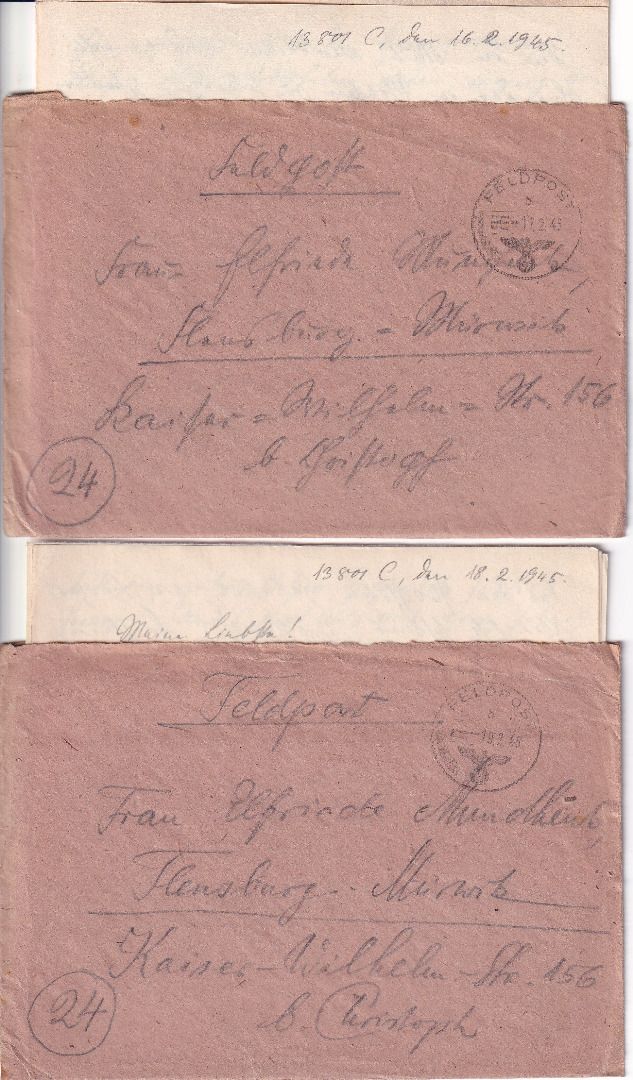 13 801 C, den 16.2.1945.
Feldpost
FELDPOST
b
17.2.45
Frau Elfriede
Flensburg-Mürwik
Kaiser-Wilhelm-Str. 156
b. Christoph
24
13 801 C, den 18.2.1945.
Meine Liebste!
Feldpost
FELDPOST
19.2.45
Frau Elfriede
Flensburg-Mürwik
Kaiser-Wilhelm-Str. 156
b. Christoph
24